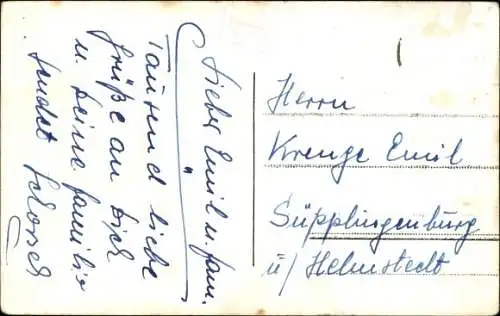 Lieber Emil u. fam.
Tausend liebe
Grüße an Dich
u. Deine familie
sendet
Herrn
Krenge Emil
Süpplingenburg
ü/ Helmstedt